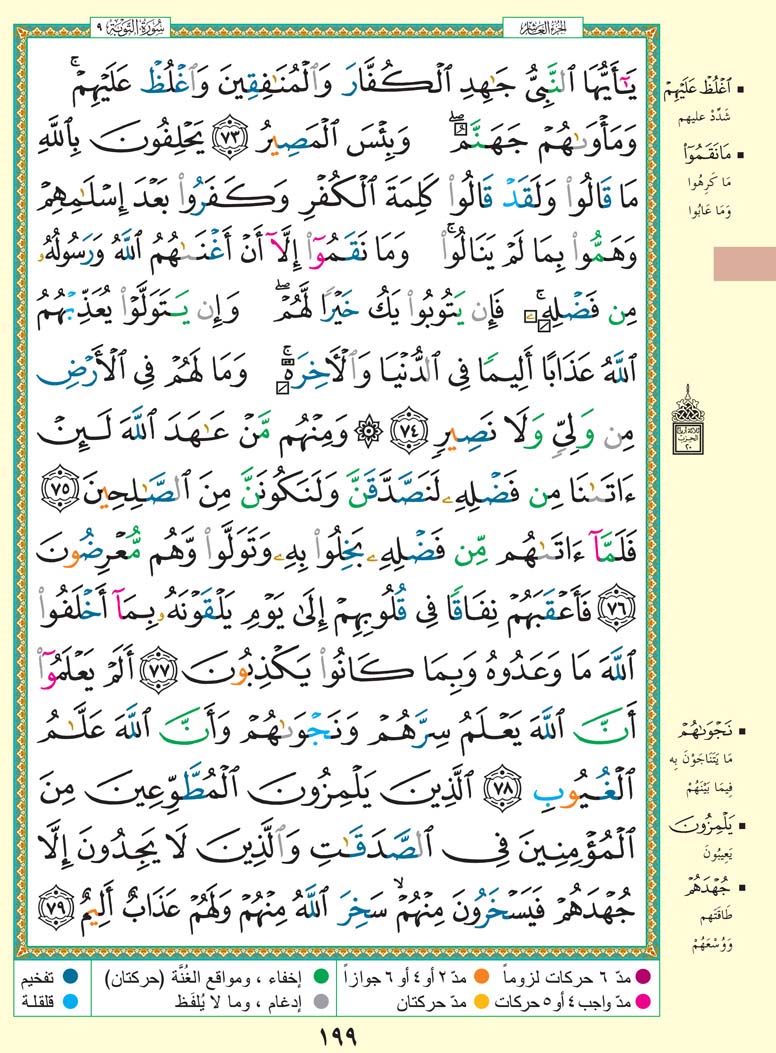 سُورَةُ التَّوبَةِ ٩
الجُزءُ العَاشِر
يَـٰٓأَيُّهَا ٱلنَّبِىُّ جَـٰهِدِ ٱلْكُفَّارَ وَٱلْمُنَـٰفِقِينَ وَٱغْلُظْ عَلَيْهِمْ ۚ
وَمَأْوَىٰهُمْ جَهَنَّمُ ۖ وَبِئْسَ ٱلْمَصِيرُ ﴿٧٣﴾ يَحْلِفُونَ بِٱللَّهِ
مَا قَالُوا۟ وَلَقَدْ قَالُوا۟ كَلِمَةَ ٱلْكُفْرِ وَكَفَرُوا۟ بَعْدَ إِسْلَـٰمِهِمْ
وَهَمُّوا۟ بِمَا لَمْ يَنَالُوا۟ ۚ وَمَا نَقَمُوٓا۟ إِلَّآ أَنْ أَغْنَىٰهُمُ ٱللَّهُ وَرَسُولُهُۥ
مِن فَضْلِهِۦ ۚ فَإِن يَتُوبُوا۟ يَكُ خَيْرًا لَّهُمْ ۖ وَإِن يَتَوَلَّوْا۟ يُعَذِّبْهُمُ
ٱللَّهُ عَذَابًا أَلِيمًا فِى ٱلدُّنْيَا وَٱلْـَٔاخِرَةِ ۚ وَمَا لَهُمْ فِى ٱلْأَرْضِ
مِن وَلِىٍّ وَلَا نَصِيرٍ ﴿٧٤﴾ ۞ وَمِنْهُم مَّنْ عَـٰهَدَ ٱللَّهَ لَئِنْ
ءَاتَىٰنَا مِن فَضْلِهِۦ لَنَصَّدَّقَنَّ وَلَنَكُونَنَّ مِنَ ٱلصَّـٰلِحِينَ ﴿٧٥﴾
فَلَمَّآ ءَاتَىٰهُم مِّن فَضْلِهِۦ بَخِلُوا۟ بِهِۦ وَتَوَلَّوا۟ وَّهُم مُّعْرِضُونَ
﴿٧٦﴾ فَأَعْقَبَهُمْ نِفَاقًا فِى قُلُوبِهِمْ إِلَىٰ يَوْمِ يَلْقَوْنَهُۥ بِمَآ أَخْلَفُوا۟
ٱللَّهَ مَا وَعَدُوهُ وَبِمَا كَانُوا۟ يَكْذِبُونَ ﴿٧٧﴾ أَلَمْ يَعْلَمُوٓا۟
أَنَّ ٱللَّهَ يَعْلَمُ سِرَّهُمْ وَنَجْوَىٰهُمْ وَأَنَّ ٱللَّهَ عَلَّـٰمُ
ٱلْغُيُوبِ ﴿٧٨﴾ ٱلَّذِينَ يَلْمِزُونَ ٱلْمُطَّوِّعِينَ مِنَ
ٱلْمُؤْمِنِينَ فِى ٱلصَّدَقَـٰتِ وَٱلَّذِينَ لَا يَجِدُونَ إِلَّا
جُهْدَهُمْ فَيَسْخَرُونَ مِنْهُمْ ۙ سَخِرَ ٱللَّهُ مِنْهُمْ وَلَهُمْ عَذَابٌ أَلِيمٌ ﴿٧٩﴾
▪ ٱغْلُظْ عَلَيْهِمْ
شَدِّدْ عليهم
▪ مَا نَقَمُوٓا۟
مَا كَرِهُوا
وَمَا عَابُوا
ثلاثة أرباع
الحِزب
٢٠
▪ نَجْوَىٰهُمْ
مَا يَتَنَاجَوْنَ بِه
فِيمَا بَيْنَهُمْ
▪ يَلْمِزُونَ
يَعِيبُونَ
▪ جُهْدَهُمْ
طَاقَتَهم
وَوُسْعَهُمْ
● مدّ ٦ حركات لزوماً ● مدّ ٢ أو ٤ أو ٦ جوازاً ● إخفاء ، ومواقع الغُنَّة (حركتان) ● تفخيم
● مدّ واجب ٤ أو ٥ حركات ● مدّ حركتان ● إدغام ، وما لا يُلفَظ ● قلقلة
١٩٩